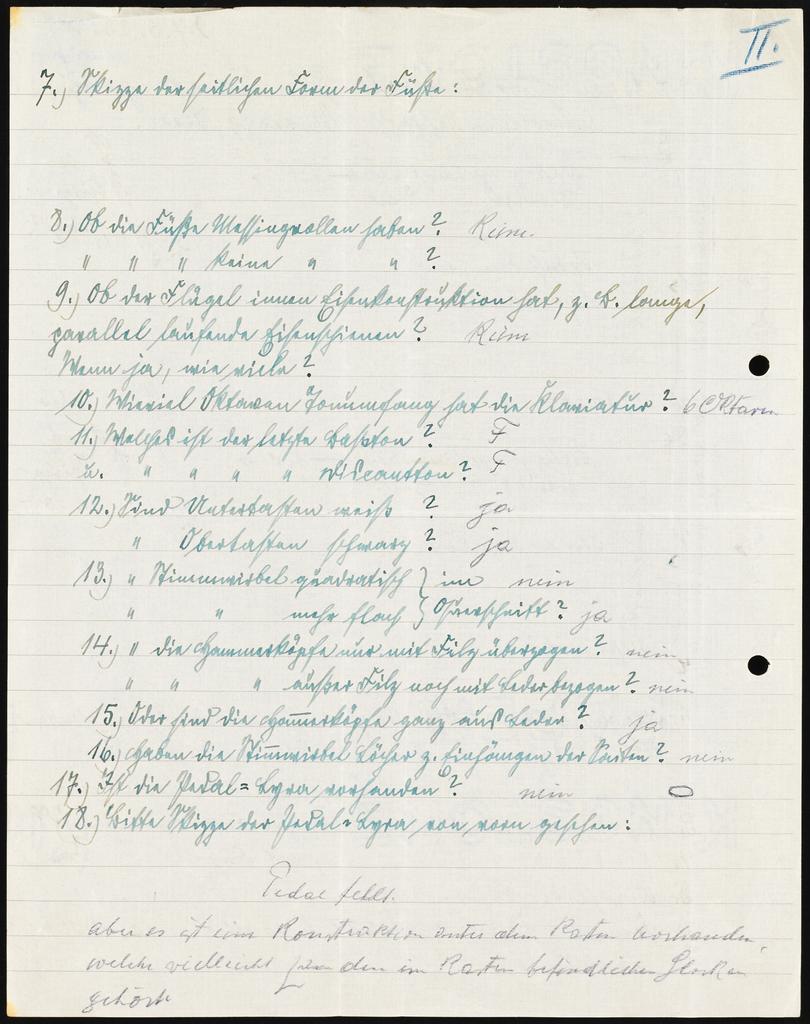 II.
7.) Skizze der seitlichen Form der Füße:
8.) Ob die Füße Messingrollen haben? Keine.
" " " keine " " ?
9.) Ob der Flügel innen Eisenkonstruktion hat, z. B. lange,
parallel laufende Eisenschienen? Kein
Wenn ja, wie viele?
10.) Wieviel Oktaven Tonumfang hat die Klaviatur? 6 Oktaven
11.) Welches ist der letzte Baßton? F
u. " " " " Discantton? F
12.) Sind Untertasten weiß ? ja
" Obertasten schwarz ? ja
13.) " Stimmwirbel quadratisch } im nein
" " mehr flach } Querschnitt? ja
14.) " die Hammerköpfe nur mit Filz überzogen? nein
" " " außer Filz noch mit Leder bezogen? nein
15.) Oder sind die Ham̅erköpfe ganz aus Leder? ja
16.) Haben die Stim̅wirbel Löcher z. Einhängen der Saiten? nein
17.) Ist die Pedal=Lyra vorhanden? nein
18.) Bitte Skizze der Pedal=Lyra von vorn gesehen:
Pedal fehlt.
aber es ist eine Konstruktion unter dem Kasten vorhanden,
welche vielleicht zu den im Kasten befindlichen Glocken
gehört